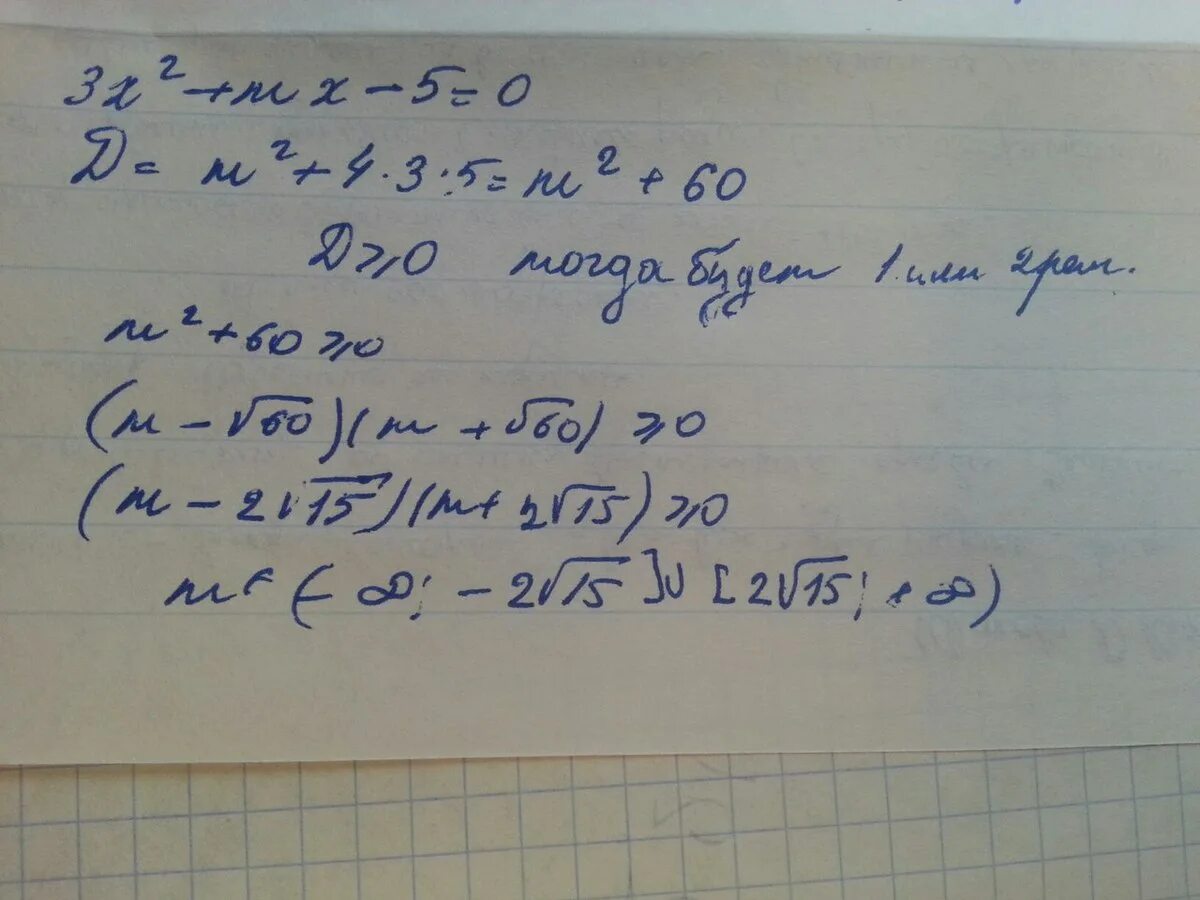 3x² + mx - 5 = 0
Д = m² + 4·3·5 = m² + 60
Д ⩾ 0 тогда будет 1 или 2 реш.
m² + 60 ⩾ 0
(m - √60)(m + √60) ⩾ 0
(m - 2√15)(m + 2√15) ⩾ 0
m ∈ (-∞; -2√15] ∪ [2√15; +∞)